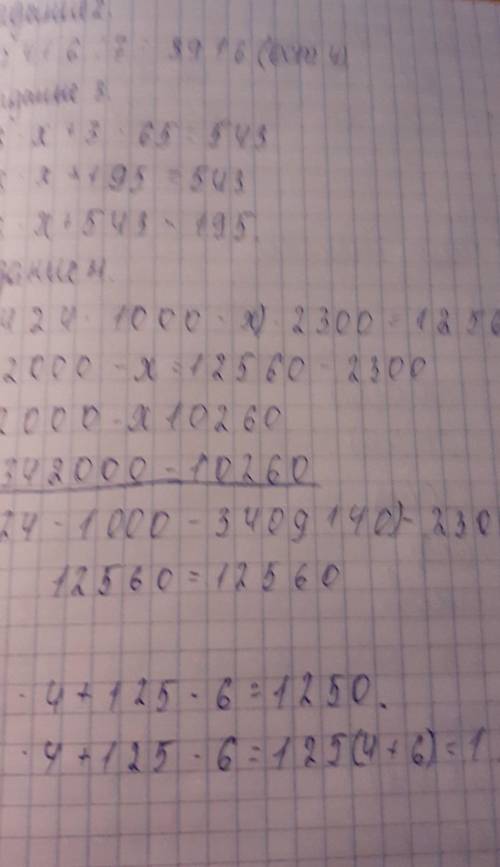 : 7 = 8916 (ост 4)
x + 3 · 65 = 543
x + 195 = 543
x + 543 - 195.
424 · 1000 - x) · 2300 = 1256
2000 - x = 12560 - 2300
2000 - x 10260
342000 - 10260
24 - 1000 - 3409140) - 230
12560 = 12560
· 4 + 125 · 6 = 1250.
· 4 + 125 · 6 = 125(4 + 6) = 1